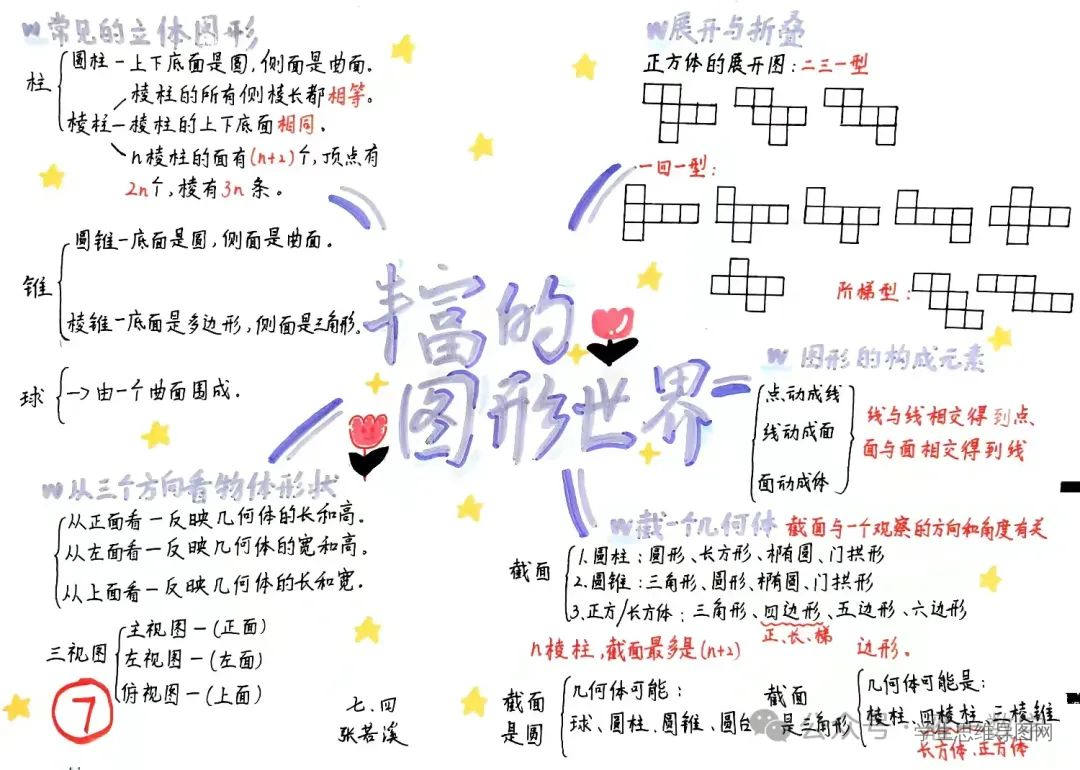 w 常见的立体图形
柱
圆柱－上下底面是圆,侧面是曲面.
棱柱的所有侧棱长都相等。
棱柱－棱柱的上下底面相同.
n棱柱的面有(n+2)个,顶点有
2n个,棱有3n条。
锥
圆锥－底面是圆,侧面是曲面.
棱锥－底面是多边形,侧面是三角形.
球
→由一个曲面围成.
w 从三个方向看物体形状
从正面看－反映几何体的长和高.
从左面看－反映几何体的宽和高.
从上面看－反映几何体的长和宽.
三视图
主视图－(正面)
左视图－(左面)
俯视图－(上面)
7
七.四
张若溪
丰富的
图形世界
w 展开与折叠
正方体的展开图:二三一型
一四一型:
阶梯型:
w 图形的构成元素
点动成线
线动成面
面动成体
线与线相交得到点、
面与面相交得到线
w 截一个几何体 截面与一个观察的方向和角度有关
截面
1.圆柱:圆形、长方形、椭圆、门拱形
2.圆锥:三角形、圆形、椭圆、门拱形
3.正方/长方体:三角形、四边形、五边形、六边形
正、长、梯
n棱柱,截面最多是(n+2)边形。
截面
是圆
几何体可能:
球、圆柱、圆锥、圆台
截面
是三角形
几何体可能是:
棱柱、四棱柱、三棱锥
长方体、正方体
公众号
学生思维导图网